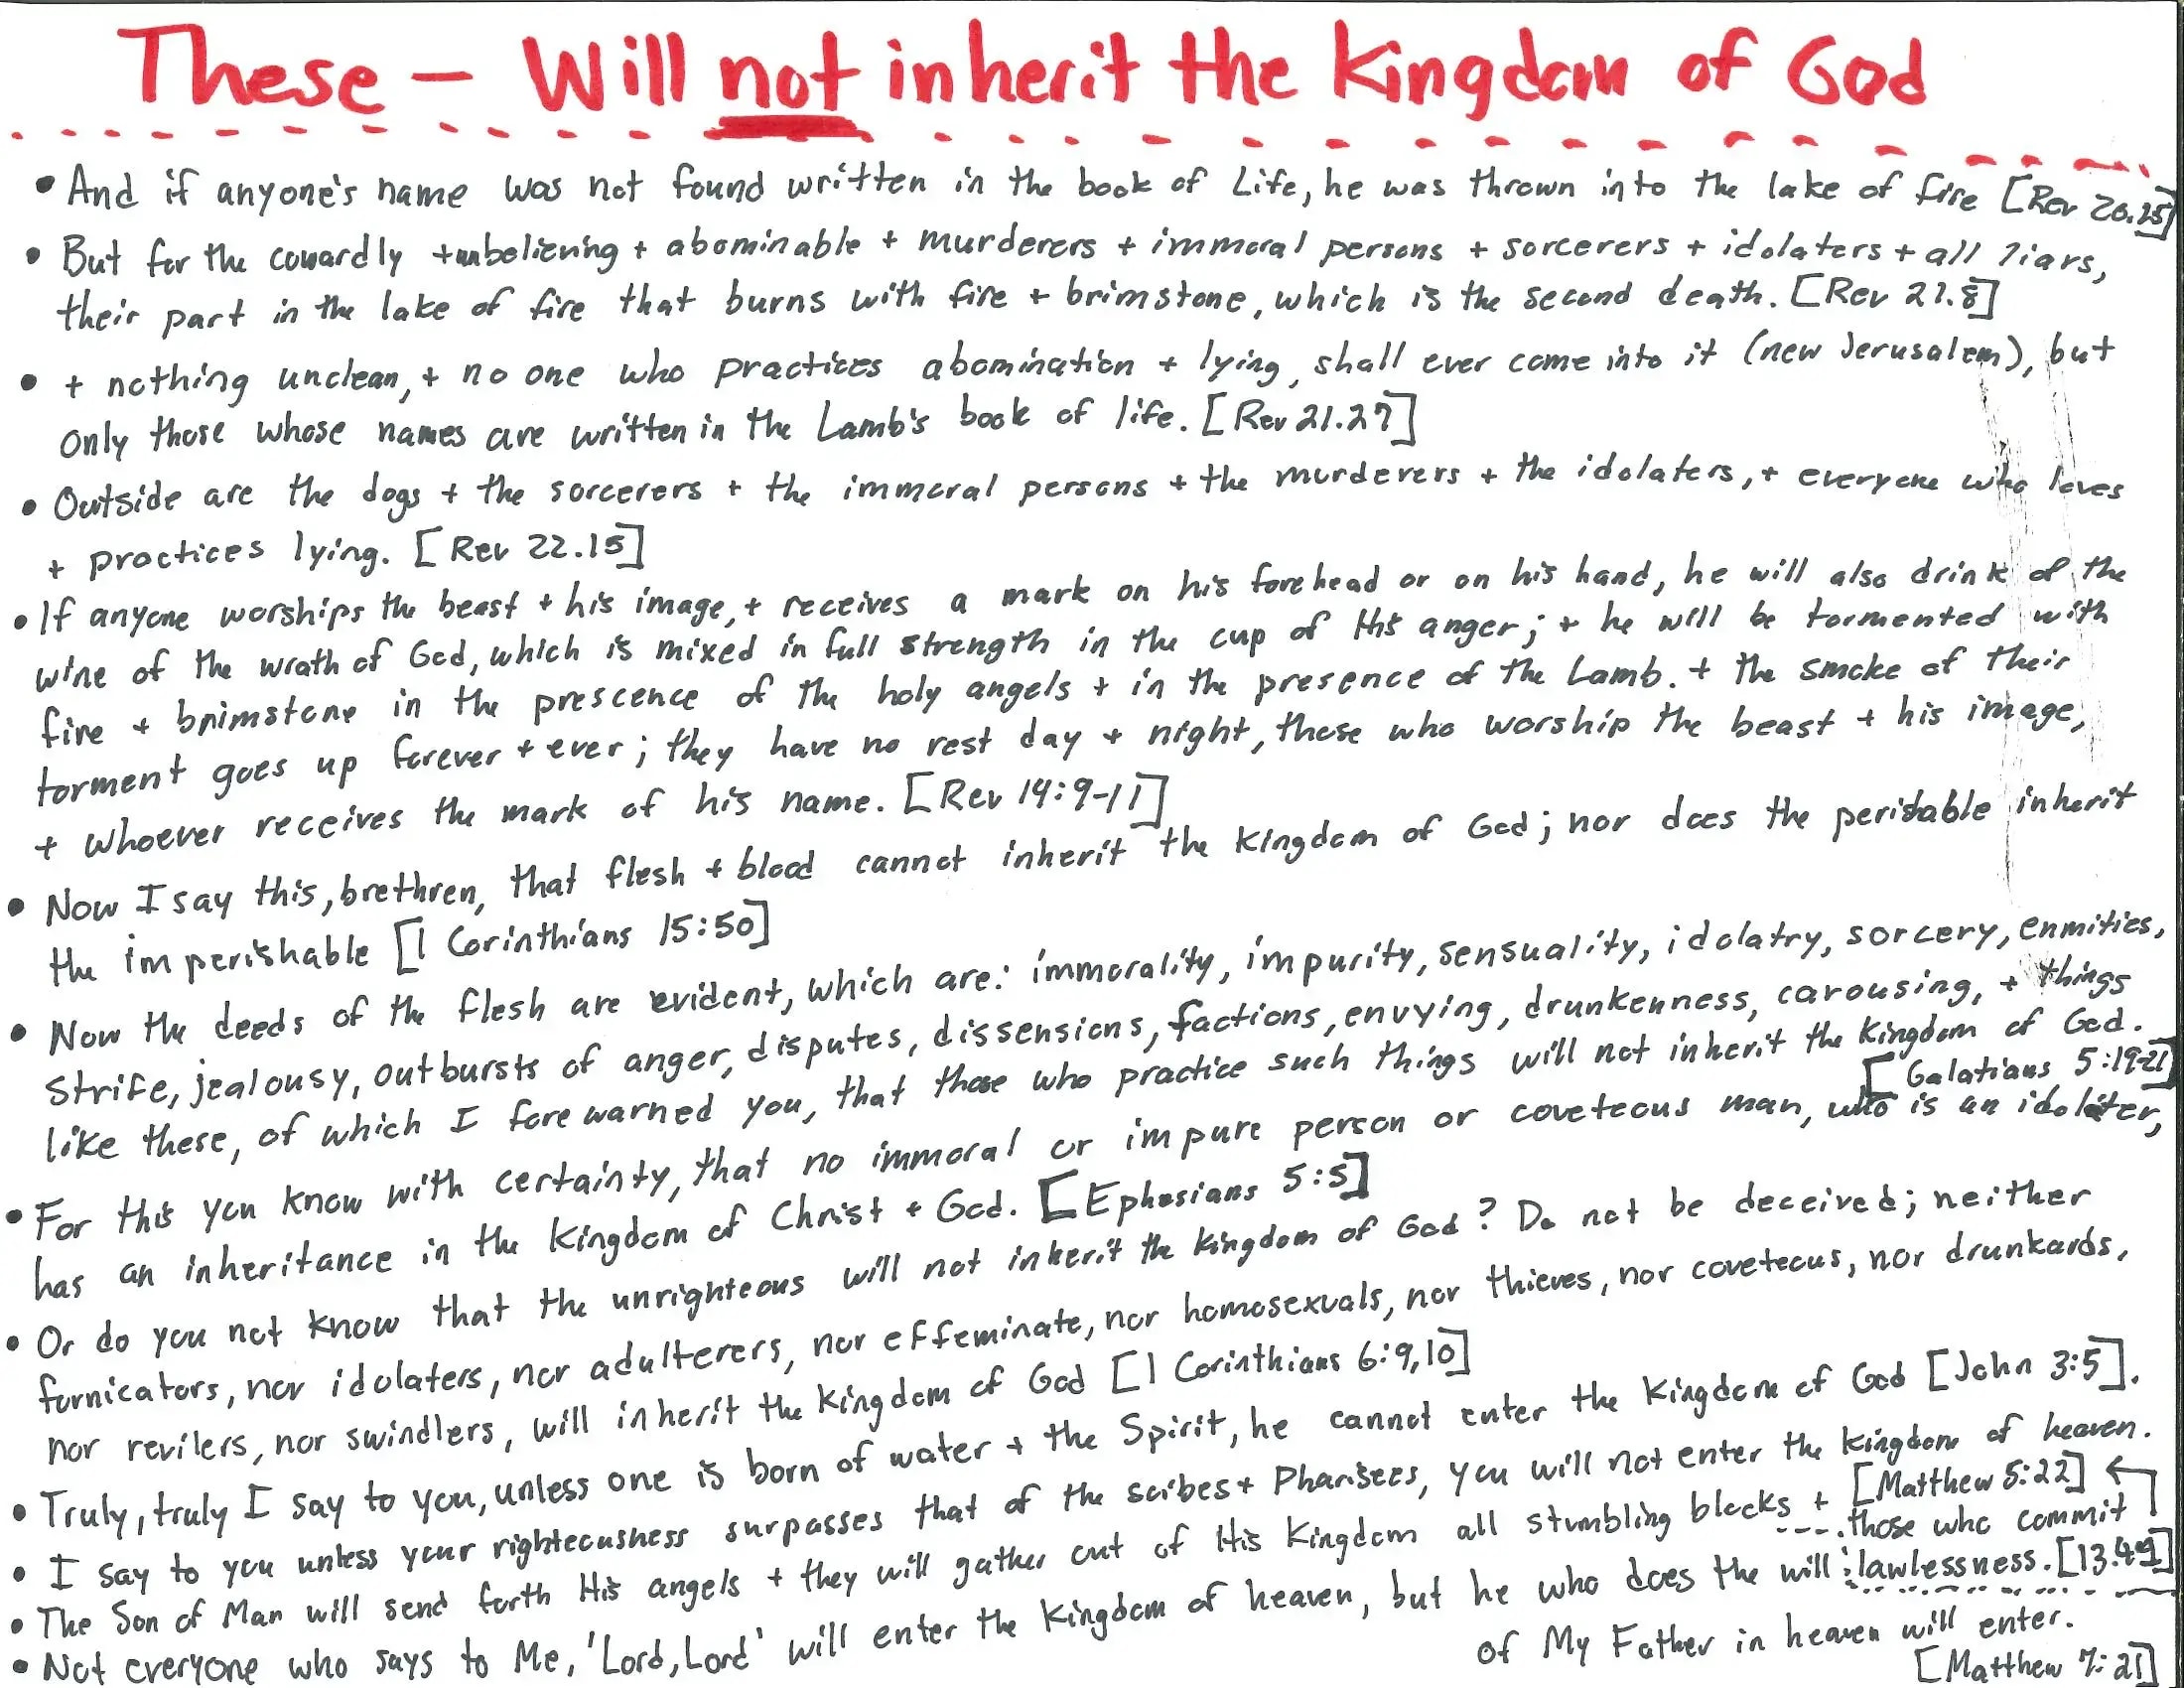 These – Will not inherit the Kingdom of God
• And if anyone's name was not found written in the book of Life, he was thrown into the lake of fire [Rev 20.15]
• But for the cowardly + unbelieving + abominable + murderers + immoral persons + sorcerers + idolaters + all liars,
their part in the lake of fire that burns with fire + brimstone, which is the second death. [Rev 21.8]
• + nothing unclean, + no one who practices abomination + lying, shall ever come into it (new Jerusalem), but
only those whose names are written in the Lamb's book of life. [Rev 21.27]
• Outside are the dogs + the sorcerers + the immoral persons + the murderers + the idolaters, + everyone who loves
+ practices lying. [Rev 22.15]
• If anyone worships the beast + his image, + receives a mark on his forehead or on his hand, he will also drink of the
wine of the wrath of God, which is mixed in full strength in the cup of His anger; + he will be tormented with
fire + brimstone in the prescence of the holy angels + in the presence of the Lamb. + the smoke of their
torment goes up forever + ever; they have no rest day + night, those who worship the beast + his image,
+ whoever receives the mark of his name. [Rev 14:9-11]
• Now I say this, brethren, that flesh + blood cannot inherit the Kingdom of God; nor does the perishable inherit
the imperishable [1 Corinthians 15:50]
• Now the deeds of the flesh are evident, which are: immorality, impurity, sensuality, idolatry, sorcery, enmities,
strife, jealousy, outbursts of anger, disputes, dissensions, factions, envying, drunkenness, carousing, + things
like these, of which I forewarned you, that those who practice such things will not inherit the Kingdom of God.
[Galatians 5:19-21]
• For this you know with certainty, that no immoral or impure person or coveteous man, who is an idolater,
has an inheritance in the Kingdom of Christ + God. [Ephesians 5:5]
• Or do you not know that the unrighteous will not inherit the kingdom of God? Do not be deceived; neither
fornicators, nor idolaters, nor adulterers, nor effeminate, nor homosexuals, nor thieves, nor coveteous, nor drunkards,
nor revilers, nor swindlers, will inherit the kingdom of God [1 Corinthians 6:9,10]
• Truly, truly I say to you, unless one is born of water + the Spirit, he cannot enter the Kingdom of God [John 3:5].
• I say to you unless your righteousness surpasses that of the scribes + Pharisees, you will not enter the kingdom of heaven.
[Matthew 5:22]
• The Son of Man will send forth His angels + they will gather out of His Kingdom all stumbling blocks + those who commit
lawlessness. [13.41]
• Not everyone who says to Me, 'Lord, Lord' will enter the Kingdom of heaven, but he who does the will
of My Father in heaven will enter.
[Matthew 7:21]